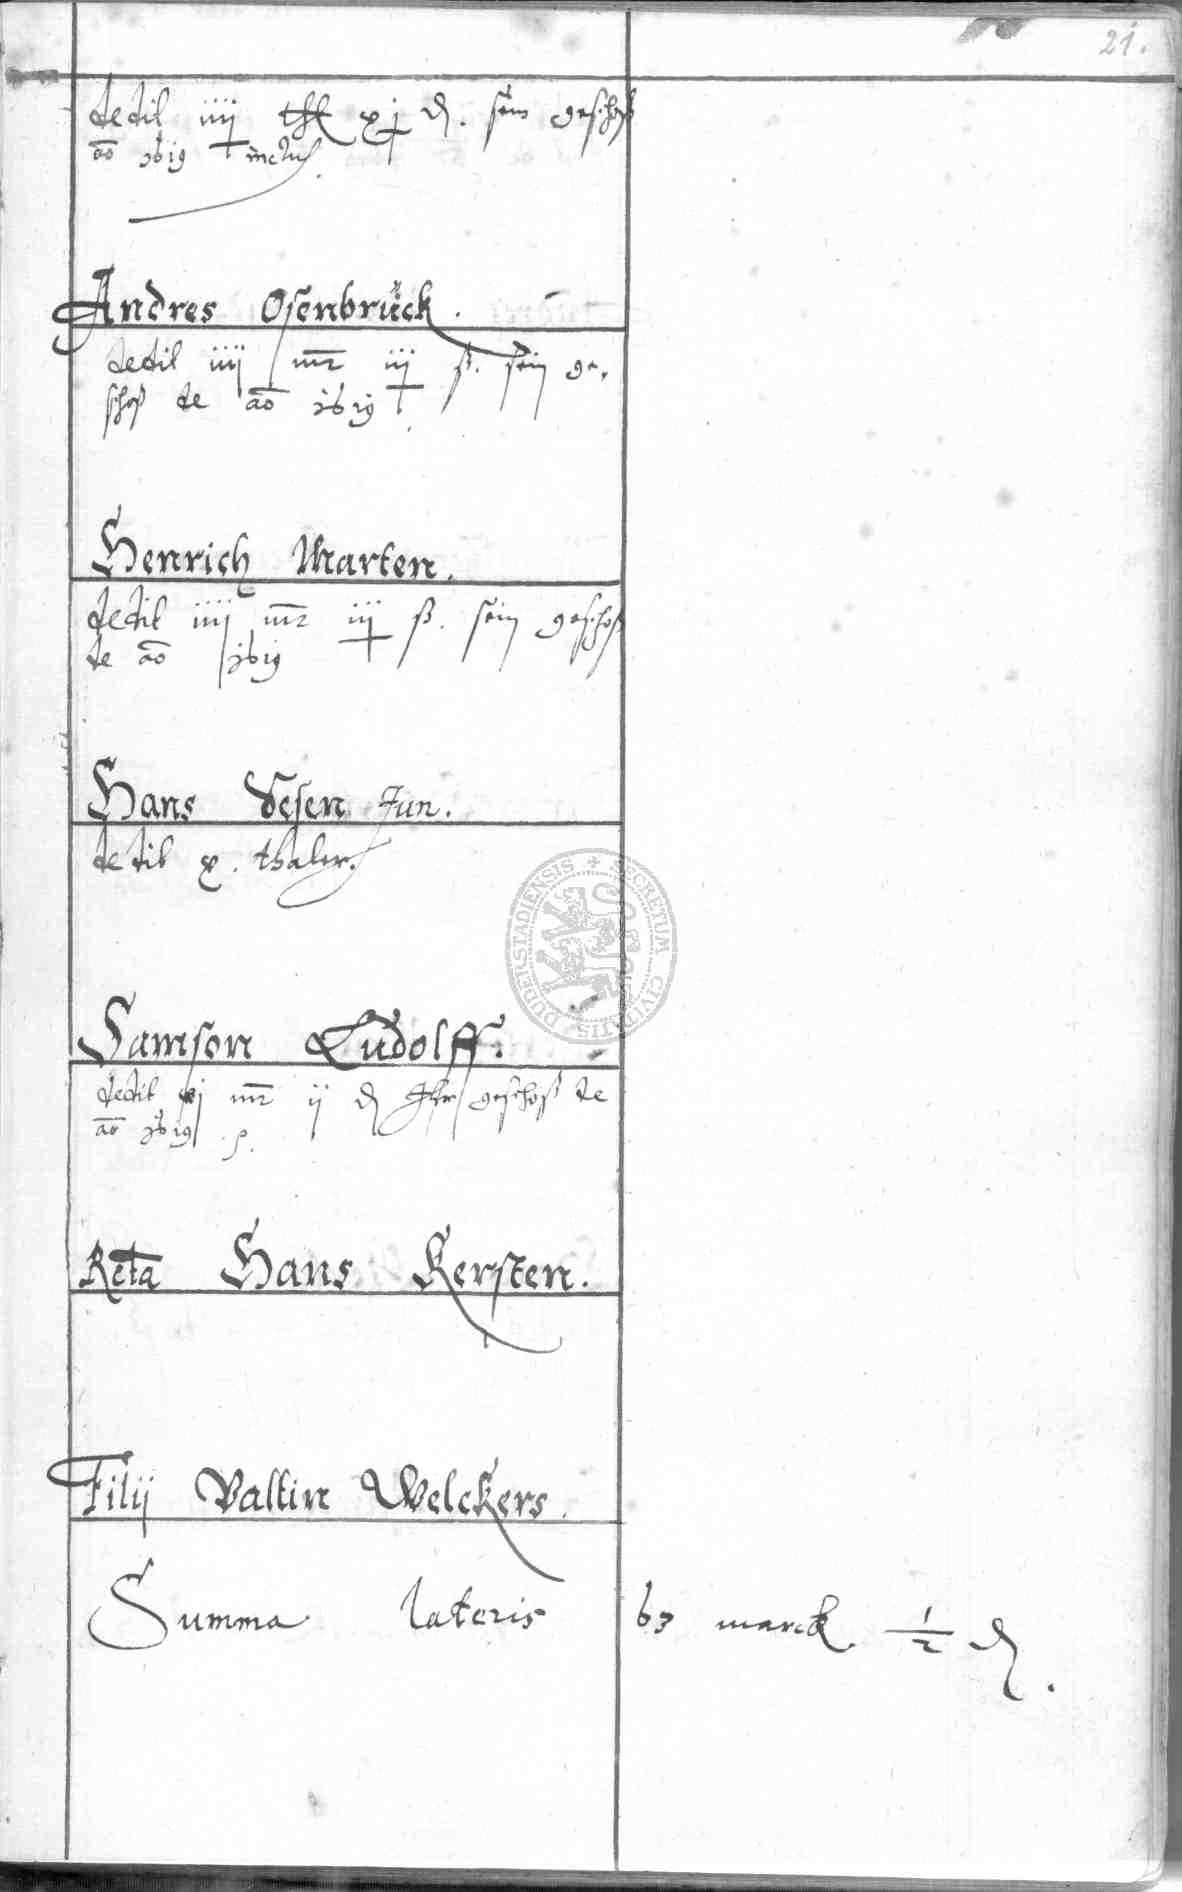 21.
dedit iiij thl xj d. sein geschoß
ao 1619 inclus.
Andres Osenbrück.
dedit iiij mr iij ß. sein ge-
schoß de ao 1619
Henrich Marten.
dedit iiij mr iij ß. sein geschoß
de ao 1619
Hans Desen Jun.
dedit x. thaler.
Samson Ludolff.
dedit xj mr ij d Ihr geschoß de
ao 1619
Rcta Hans Kersten.
Filij Valtin Welckers.
Summa lateris 63 marck. 1/2 d.
SECRETUM CIVITATIS DUDERSTADIENSIS